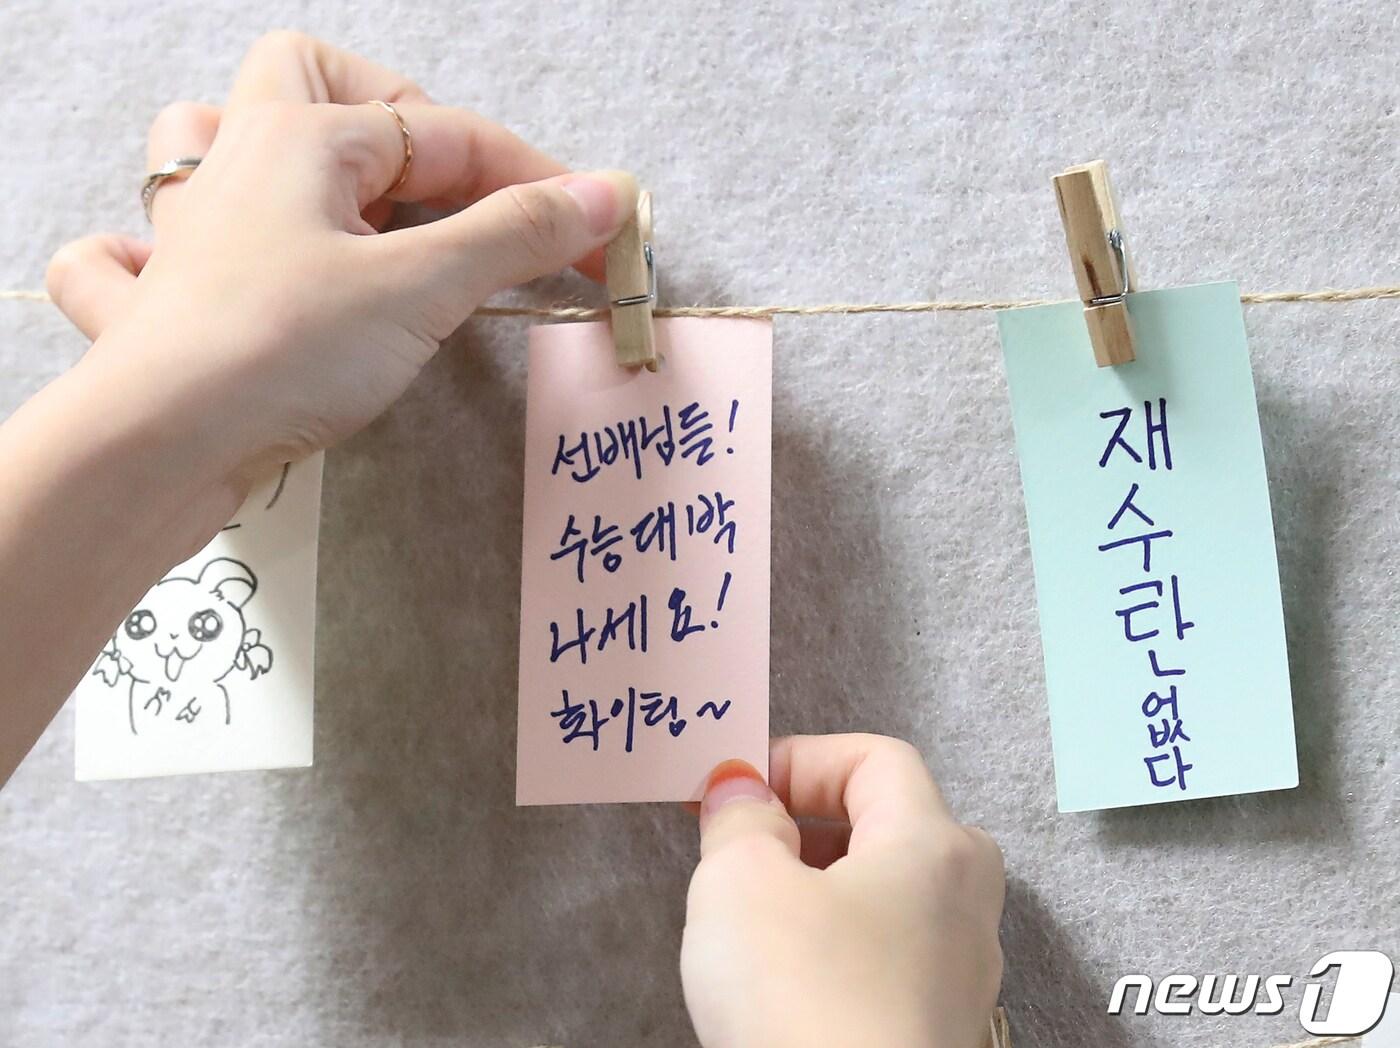 선배님들!
수능대박
나세요!
화이팅~
재
수
란
없
다
news1